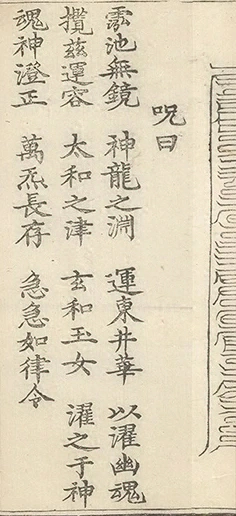 咒曰
池無鏡 神龍之淵 運東井華 以濯幽魂
攬茲運容 太和之津 玄和玉女 濯之于神
魂神澄正 萬炁長存 急急如律令